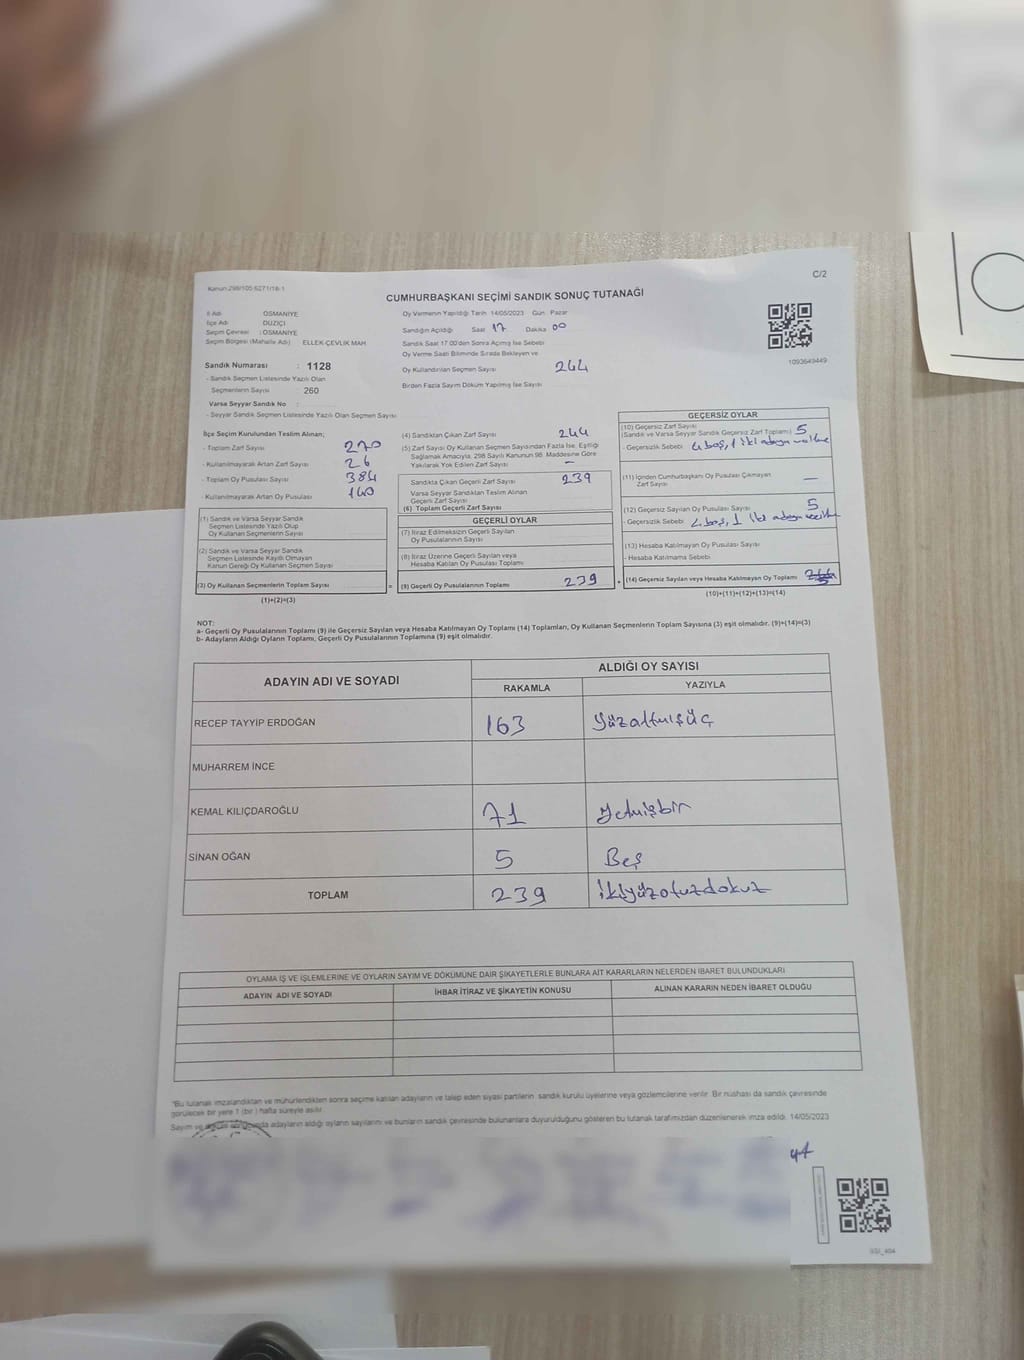 Kanun:298/105-6271/16-1
C/2
CUMHURBAŞKANI SEÇİMİ SANDIK SONUÇ TUTANAĞI
İl Adı OSMANİYE
İlçe Adı DÜZİÇİ
Seçim Çevresi : OSMANİYE
Seçim Bölgesi (Mahalle Adı) ELLEK-ÇEVLİK MAH
Sandık Numarası : 1128
- Sandık Seçmen Listesinde Yazılı Olan
Seçmenlerin Sayısı : 260
Varsa Seyyar Sandık No :
- Seyyar Sandık Seçmen Listesinde Yazılı Olan Seçmen Sayısı
Oy Vermenin Yapıldığı Tarih 14/05/2023 Gün Pazar
Sandığın Açıldığı Saat 17 Dakika 00
Sandık Saat 17:00'den Sonra Açılmış İse Sebebi
Oy Verme Saati Bitiminde Sırada Bekleyen ve
Oy Kullandırılan Seçmen Sayısı 244
Birden Fazla Sayım Döküm Yapılmış İse Sayısı
1093649449
İlçe Seçim Kurulundan Teslim Alınan;
- Toplam Zarf Sayısı 270
- Kullanılmayarak Artan Zarf Sayısı 26
- Toplam Oy Pusulası Sayısı 384
- Kullanılmayarak Artan Oy Pusulası 140
(1) Sandık ve Varsa Seyyar Sandık
Seçmen Listesinde Yazılı Olup
Oy Kullanan Seçmenlerin Sayısı
(2) Sandık ve Varsa Seyyar Sandık
Seçmen Listesinde Kayıtlı Olmayan
Kanun Gereği Oy Kullanan Seçmen Sayısı
(3) Oy Kullanan Seçmenlerin Toplam Sayısı =
(1)+(2)=(3)
(4) Sandıktan Çıkan Zarf Sayısı 244
(5) Zarf Sayısı Oy Kullanan Seçmen Sayısından Fazla İse, Eşitliği
Sağlamak Amacıyla, 298 Sayılı Kanunun 98. Maddesine Göre
Yakılarak Yok Edilen Zarf Sayısı –
Sandıkta Çıkan Geçerli Zarf Sayısı 239
Varsa Seyyar Sandıktan Teslim Alınan
Geçerli Zarf Sayısı
(6) Toplam Geçerli Zarf Sayısı
GEÇERLİ OYLAR
(7) İtiraz Edilmeksizin Geçerli Sayılan
Oy Pusulalarının Sayısı
(8) İtiraz Üzerine Geçerli Sayılan veya
Hesaba Katılan Oy Pusulası Toplamı
(9) Geçerli Oy Pusulalarının Toplamı 239 +
GEÇERSİZ OYLAR
(10) Geçersiz Zarf Sayısı
(Sandık ve Varsa Seyyar Sandık Geçersiz Zarf Toplamı) 5
- Geçersizlik Sebebi 4 boş, 1 iki adaya
(11) İçinden Cumhurbaşkanı Oy Pusulası Çıkmayan
Zarf Sayısı –
(12) Geçersiz Sayılan Oy Pusulası Sayısı 5
- Geçersizlik Sebebi 4 boş, 1 iki adaya
(13) Hesaba Katılmayan Oy Pusulası Sayısı
- Hesaba Katılmama Sebebi
(14) Geçersiz Sayılan veya Hesaba Katılmayan Oy Toplamı 5
(10)+(11)+(12)+(13)=(14)
NOT:
a- Geçerli Oy Pusulalarının Toplamı (9) ile Geçersiz Sayılan veya Hesaba Katılmayan Oy Toplamı (14) Toplamları, Oy Kullanan Seçmenlerin Toplam Sayısına (3) eşit olmalıdır. (9)+(14)=(3)
b- Adayların Aldığı Oyların Toplamı, Geçerli Oy Pusulalarının Toplamına (9) eşit olmalıdır.
ADAYIN ADI VE SOYADI ALDIĞI OY SAYISI
RAKAMLA YAZIYLA
RECEP TAYYİP ERDOĞAN 163 Yüzaltmışüç
MUHARREM İNCE
KEMAL KILIÇDAROĞLU 71 Yetmişbir
SİNAN OĞAN 5 Beş
TOPLAM 239 İkiyüzotuzdokuz
OYLAMA İŞ VE İŞLEMLERİNE VE OYLARIN SAYIM VE DÖKÜMÜNE DAİR ŞİKAYETLERLE BUNLARA AİT KARARLARIN NELERDEN İBARET BULUNDUKLARI
ADAYIN ADI VE SOYADI İHBAR İTİRAZ VE ŞİKAYETİN KONUSU ALINAN KARARIN NEDEN İBARET OLDUĞU
"Bu tutanak imzalandıktan ve mühürlendikten sonra seçime katılan adayların ve talep eden siyasi partilerin sandık kurulu üyelerine veya gözlemcilerine verilir. Bir nüshası da sandık çevresinde
görülecek bir yere 1 (bir ) hafta süreyle asılır.
Sayım ve adayların aldığı oyların sayılarını ve bunların sandık çevresinde bulunanlara duyurulduğunu gösteren bu tutanak tarafımızdan düzenlenerek imza edildi. 14/05/2023